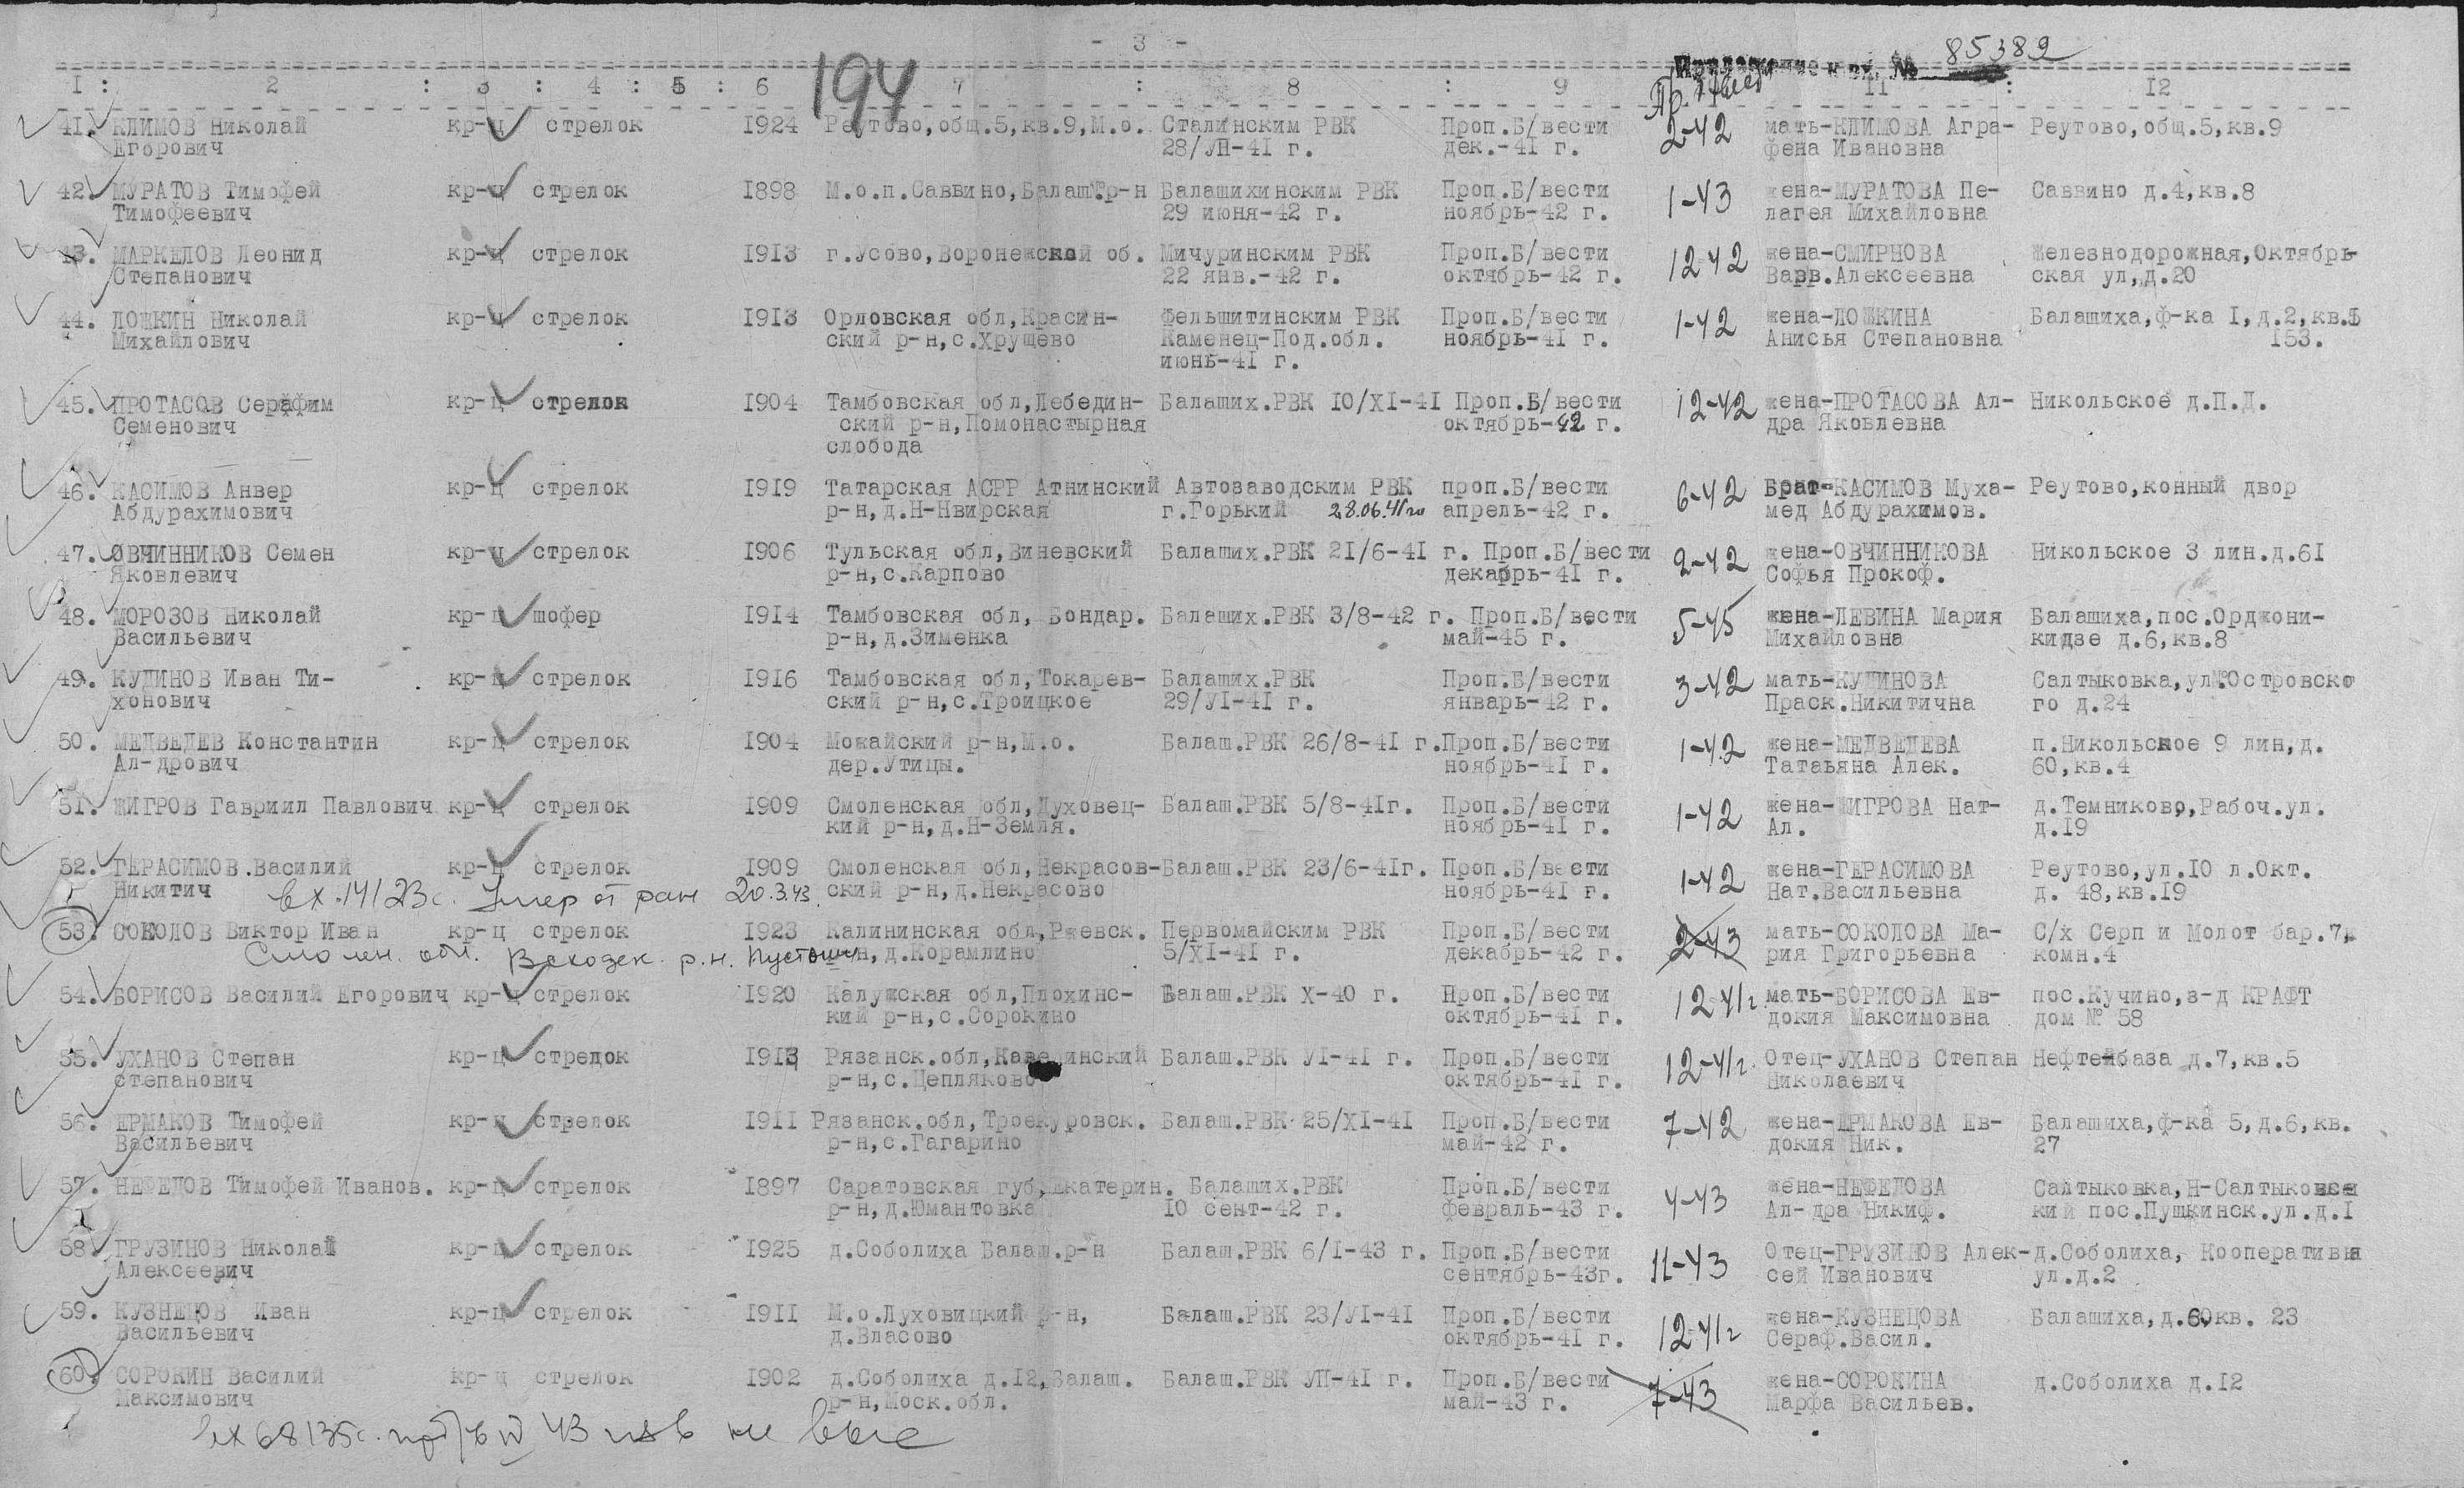 - 3 -
194
Приложение к вх. № 85389
1 : 2 : 3 : 4 : 5 : 6 7 : 8 : 9 11 : 12
41. КЛИМОВ Николай кр-ц стрелок 1924 Реутово,общ.5,кв.9,М.о. Сталинским РВК Проп.Б/вести 2-42 мать-КЛИМОВА Агра- Реутово,общ.5,кв.9
Егорович 28/УП-41 г. дек.-41 г. фена Ивановна
42. МУРАТОВ Тимофей кр-ц стрелок 1898 М.о.п.Саввино,Балаш.р-н Балашихинским РВК Проп.Б/вести 1-43 жена-МУРАТОВА Пе- Саввино д.4,кв.8
Тимофеевич 29 июня-42 г. ноябрь-42 г. лагея Михайловна
43. МАРКЕЛОВ Леонид кр-ц стрелок 1913 г.Усово,Воронежской об. Мичуринским РВК Проп.Б/вести 12-42 жена-СМИРНОВА Железнодорожная,Октябрь-
Степанович 22 янв.-42 г. октябрь-42 г. Варв.Алексеевна ская ул,д.20
44. ЛОШКИН Николай кр-ц стрелок 1913 Орловская обл,Красин- Фельшитинским РВК Проп.Б/вести 1-42 жена-ЛОШКИНА Балашиха,ф-ка 1,д.2,кв.
Михайлович ский р-н,с.Хрущево Каменец-Под.обл. ноябрь-41 г. Анисья Степановна 153.
июнь-41 г.
45. ПРОТАСОВ Серафим кр-ц стрелок 1904 Тамбовская обл,Лебедин- Балаших.РВК 10/XI-41 Проп.Б/вести 12-42 жена-ПРОТАСОВА Ал- Никольское д.П.Д.
Семенович ский р-н,Помонастырная октябрь-42 г. дра Яковлевна
слобода
46. КАСИМОВ Анвер кр-ц стрелок 1919 Татарская АСРР Атнинский Автозаводским РВК проп.Б/вести 6-42 Брат-КАСИМОВ Муха- Реутово,конный двор
Абдурахимович р-н,д.Н-Нвирская г.Горький 28.06.41 го апрель-42 г. мед Абдурахимов.
47. ОВЧИННИКОВ Семен кр-ц стрелок 1906 Тульская обл,Виневский Балаших.РВК 21/6-41 г. Проп.Б/вести 2-42 жена-ОВЧИННИКОВА Никольское 3 лин.д.61
Яковлевич р-н,с.Карпово декабрь-41 г. Софья Прокоф.
48. МОРОЗОВ Николай кр-ц шофер 1914 Тамбовская обл, Бондар. Балаших.РВК 3/8-42 г. Проп.Б/вести 5-45 жена-ЛЕВИНА Мария Балашиха,пос.Орджони-
Васильевич р-н,д.Зименка май-45 г. Михайловна кидзе д.6,кв.8
49. КУДИНОВ Иван Ти- кр-ц стрелок 1916 Тамбовская обл,Токарев- Балаших.РВК Проп.Б/вести 3-42 мать-КУДИНОВА Салтыковка,ул.Островско
хонович ский р-н,с.Троицкое 29/УІ-41 г. январь-42 г. Праск.Никитична го д.24
50. МЕДВЕДЕВ Константин кр-ц стрелок 1904 Можайский р-н,М.о. Балаш.РВК 26/8-41 г.Проп.Б/вести 1-42 жена-МЕДВЕДЕВА п.Никольское 9 лин,д.
Ал-дрович дер.Утицы. ноябрь-41 г. Татаьяна Алек. 60,кв.4
51. ЖИГРОВ Гавриил Павлович кр-ц стрелок 1909 Смоленская обл,Духовец- Балаш.РВК 5/8-41г. Проп.Б/вести 1-42 жена-ЖИГРОВА Нат- д.Темниково,Рабоч.ул.
кий р-н,д.Н-Земля. ноябрь-41 г. Ал. д.19
52. ГЕРАСИМОВ.Василий кр-ц стрелок 1909 Смоленская обл,Некрасов-Балаш.РВК 23/6-41г. Проп.Б/вести 1-42 жена-ГЕРАСИМОВА Реутово,ул.10 л.Окт.
Никитич вх.14123с. Умер от ран 20.3.43. ский р-н,д.Некрасово ноябрь-41 г. Нат.Васильевна д. 48,кв.19
53. СОКОЛОВ Виктор Иван кр-ц стрелок 1923 Калининская обл,Ржевск. Первомайским РВК Проп.Б/вести 2-43 мать-СОКОЛОВА Ма- С/х Серп и Молот бар.7,
Смолен. обл. р.н. Пустошки р-н,д.Корамлино 5/XI-41 г. декабрь-42 г. рия Григорьевна комн.4
54. БОРИСОВ Василий Егорович кр-ц стрелок 1920 Калужская обл,Плохинс- Балаш.РВК X-40 г. Проп.Б/вести 12-41г. мать-БОРИСОВА Ев- пос.Кучино,з-д КРАФТ
кий р-н,с.Сорокино октябрь-41 г. докия Максимовна дом № 58
55. УХАНОВ Степан кр-ц стрелок 1913 Рязанск.обл, Балаш.РВК УІ-41 г. Проп.Б/вести 12-41г. Отец-УХАНОВ Степан Нефтебаза д.7,кв.5
степанович р-н,с.Цепляково октябрь-41 г. Николаевич
56. ЕРМАКОВ Тимофей кр-ц стрелок 1911 Рязанск.обл,Троекуровск. Балаш.РВК 25/XI-41 Проп.Б/вести 7-42 жена-ЕРМАКОВА Ев- Балашиха,ф-ка 5,д.6,кв.
Васильевич р-н,с.Гагарино май-42 г. докия Ник. 27
57. НЕФЕДОВ Тимофей Иванов. кр-ц стрелок 1897 Саратовская губ,Екатерин. Балаших.РВК Проп.Б/вести 4-43 жена-НЕФЕДОВА Салтыковка,Н-Салтыковс
р-н,д.Юмантовка 10 сент-42 г. февраль-43 г. Ал-дра Никиф. кий пос.Пушкинск.ул.д.1
58. ГРУЗИНОВ Николай кр-ц стрелок 1925 д.Соболиха Балаш.р-н Балаш.РВК 6/1-43 г. Проп.Б/вести 11-43 Отец-ГРУЗИНОВ Алек-д.Соболиха, Кооперативн
Алексеевич сентябрь-43г. сей Иванович ул.д.2
59. КУЗНЕЦОВ Иван кр-ц стрелок 1911 М.о.Луховицкий р-н, Балаш.РВК 23/УІ-41 Проп.Б/вести 12-41г жена-КУЗНЕЦОВА Балашиха,д.60кв. 23
Васильевич д.Власово октябрь-41 г. Сераф.Васил.
60. СОРОКИН Василий кр-ц стрелок 1902 д.Соболиха д.12,Балаш. Балаш.РВК УП-41 г. Проп.Б/вести 7-43 жена-СОРОКИНА д.Соболиха д.12
Максимович р-н,Моск.обл. май-43 г. Марфа Васильев.
вх 68135с. 43 изв не выс